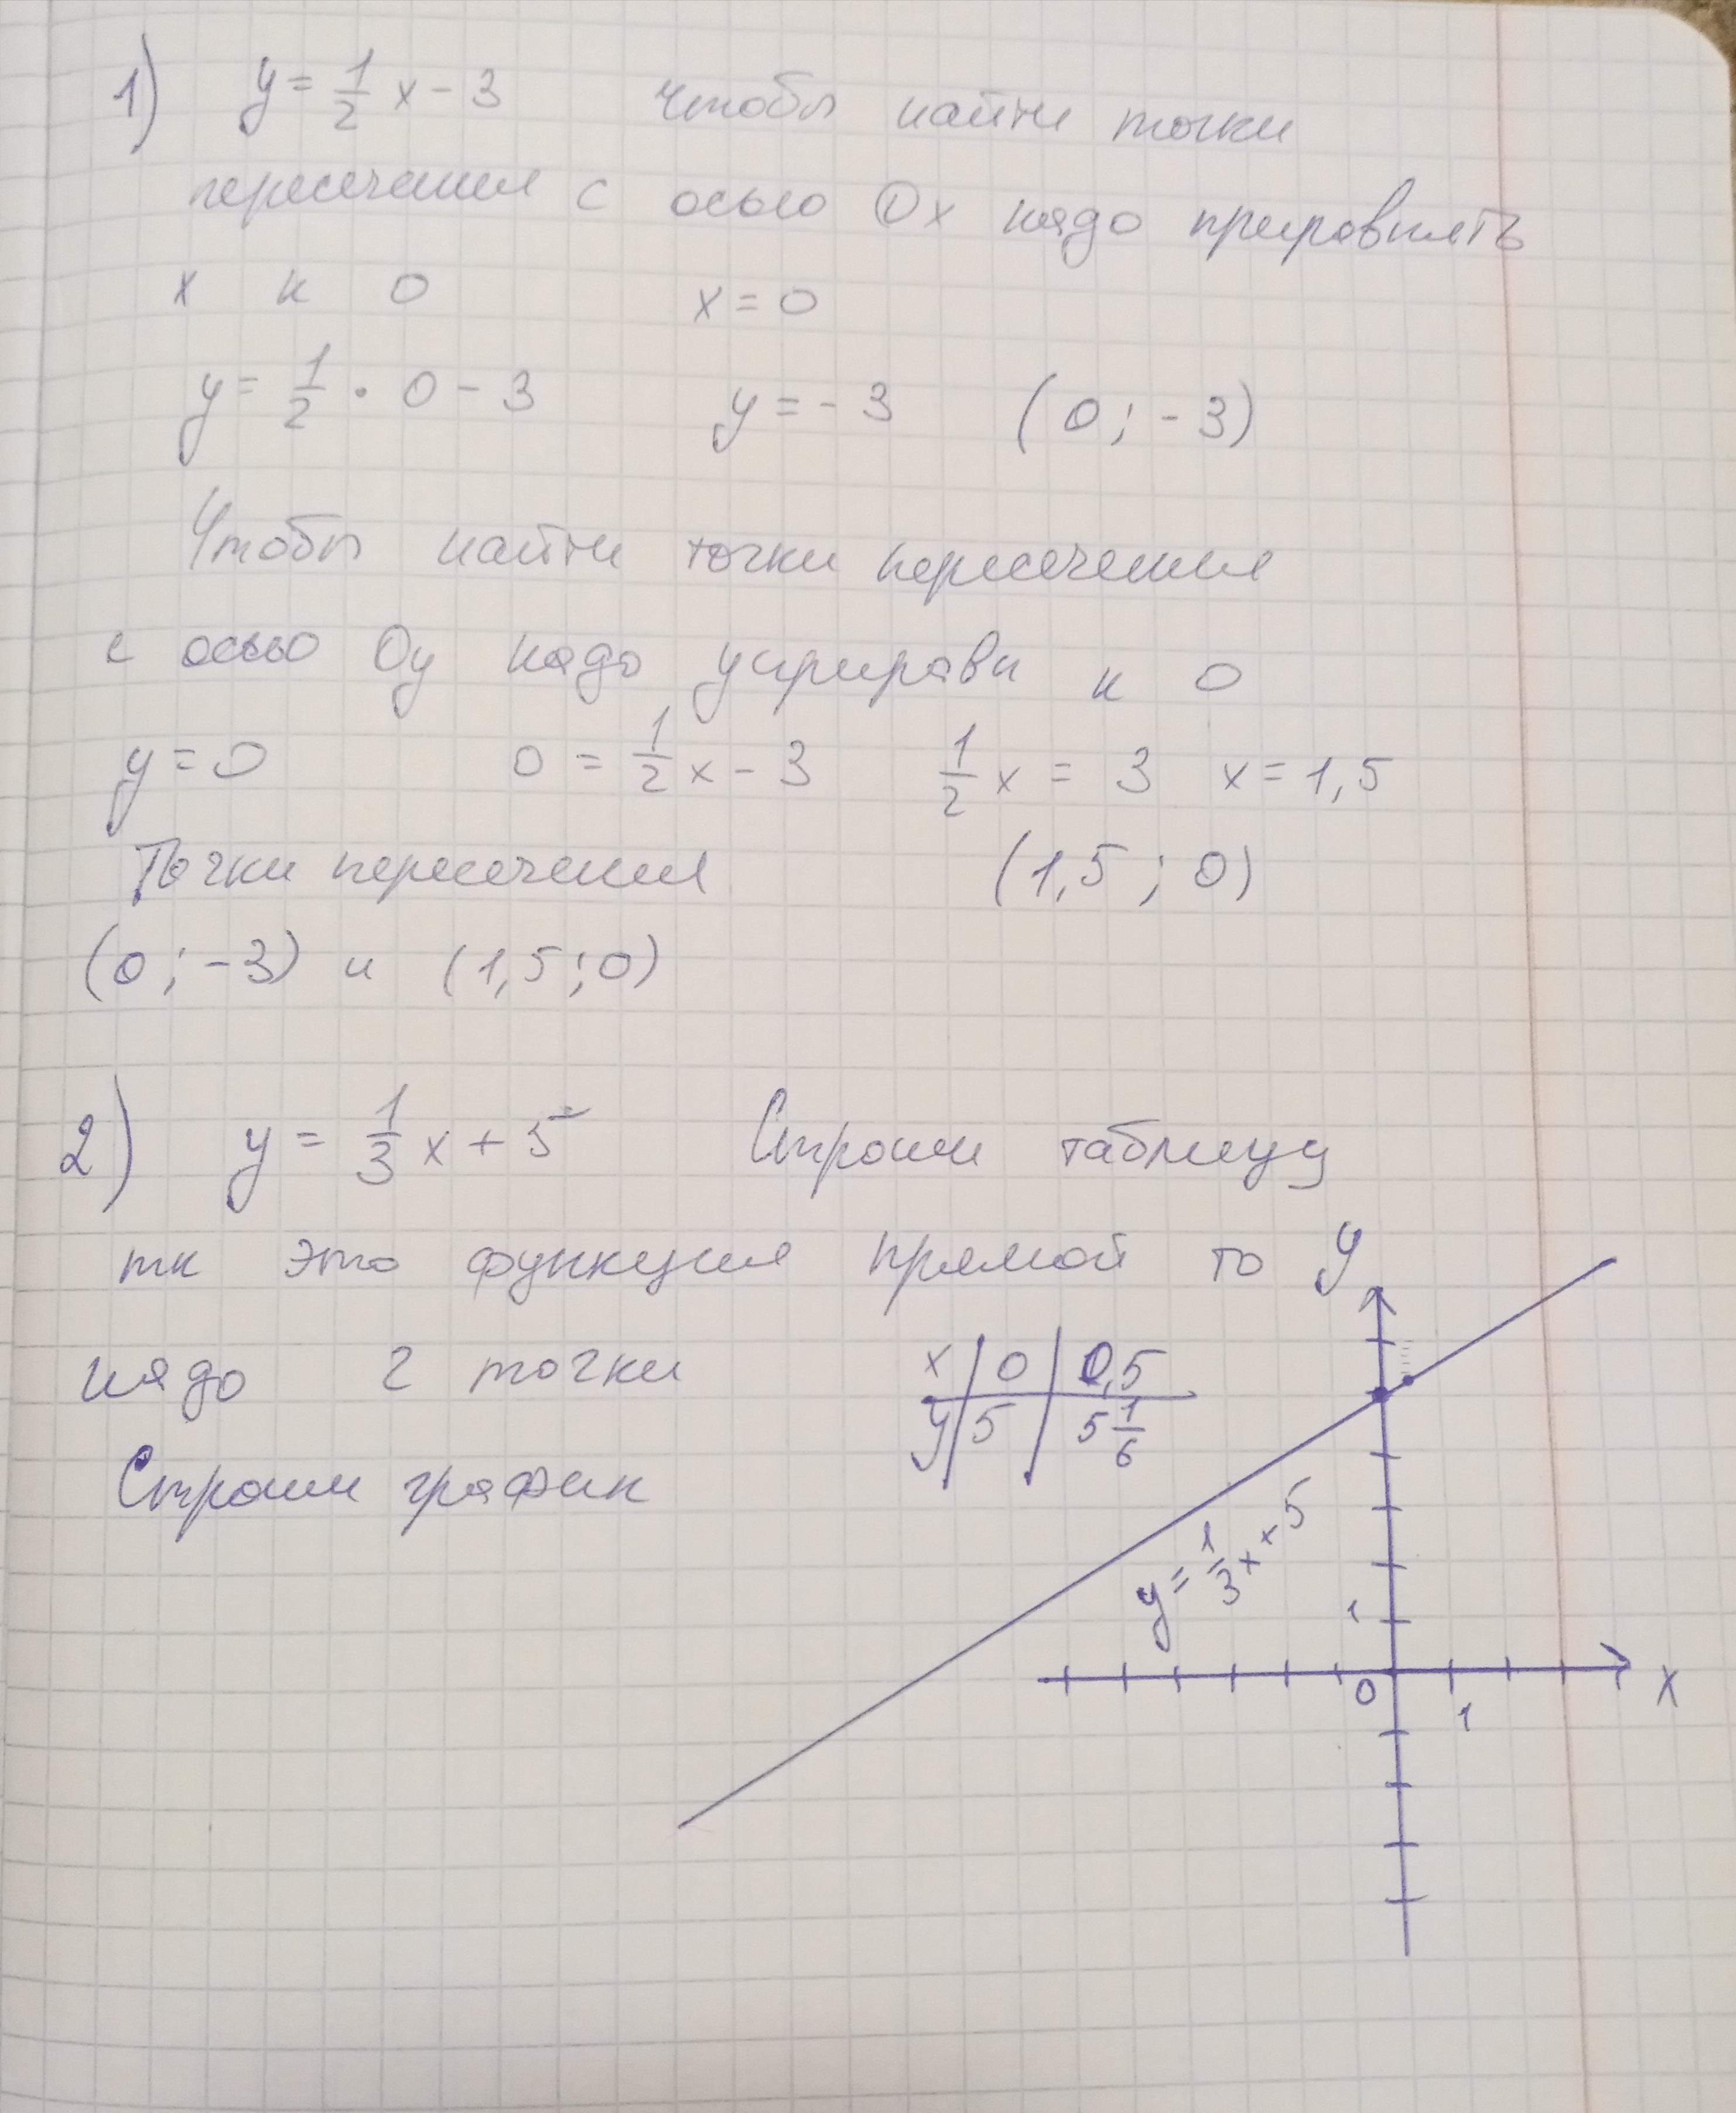 1) y = 1/2 x - 3 Чтобы найти точки
пересечения с осью Ox надо приравнять
x к 0 x = 0
y = 1/2 · 0 - 3 y = - 3 (0; -3)
Чтобы найти точки пересечения
с осью Oy надо y к 0
y = 0 0 = 1/2 x - 3 1/2 x = 3 x = 1,5
Точки пересечения (1,5; 0)
(0; -3) и (1,5; 0)
2) y = 1/3 x + 5 Строим таблицу
тк это функция прямой то
надо 2 точки
x 0 0,5
y 5 5 1/6
Строим график
y
y = 1/3 x + 5
1
0
1
x